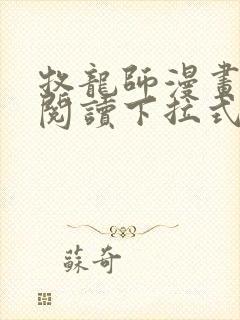 牧龍師漫畫
閱讀下拉式
蘇奇